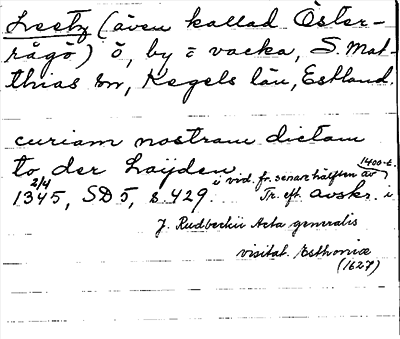 Leetz (även kallad Öster-
rågö) ö, by = vacka, S. Mat-
thias sn, Kegels län, Estland.
curiam nostram dictam
to der Layden
i vid. fr. senare hälften av 1400-t.
2/4 1345, SD 5, s. 429. Tr. eft. avskr. i
J. Rudbeckii Acta generalis
visitat. Esthoniæ
(1627)